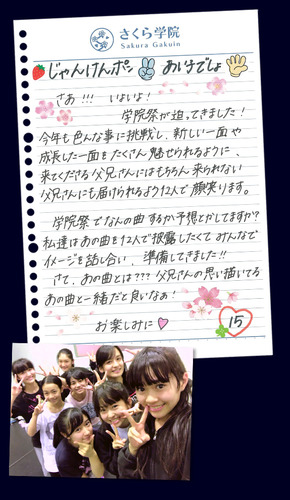 さくら学院
Sakura Gakuin
じゃんけんポン あいこでしょ
さあ!!! いよいよ!
学院祭が迫ってきました!
今年も色んな事に挑戦し、新しい一面や
成長した一面をたくさん魅せられるように、
来てくださる父兄さんにはもちろん来られない
父兄さんにも届けられるよう12人で顔笑ります。
学院祭でなんの曲するか予想とかしてますか?
私達はあの曲を12人で披露したくてみんなで
イメージを話し合い、準備してきました!!
さて、あの曲とは??? 父兄さんの思い描いてる
あの曲と一緒だと良いなぁ!
お楽しみに
15